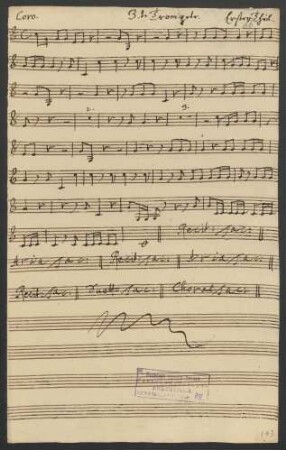 Coro. 3. te Trompete. Erster Theil.
2. 3.
Recit: tac:
Aria tac: Recit: tac: Aria tac:
Recit: tac: Duetto tac: Choral tac:
143